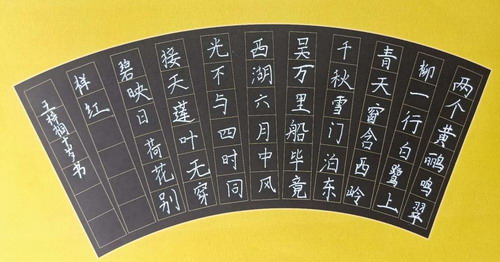 两个黄鹂鸣翠
柳一行白鹭上
青天窗含西岭
千秋雪门泊东
吴万里船毕竟
西湖六月中风
光不与四时同
接天莲叶无穷
碧映日荷花别
样红
王梓十岁书